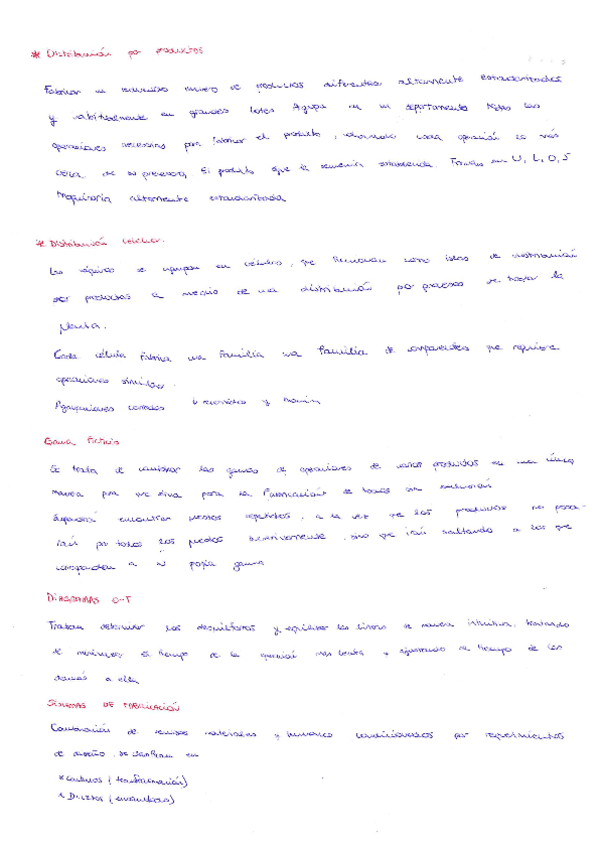 * Distribución por productos
Fabricar un reducido número de productos diferentes altamente estandarizados
y habitualmente en grandes lotes Agrupa en un departamento todas las
operaciones necesarias para fabricar el producto, cada operación es más
de su proceso, El producto que la demanda. Formas en U, L, O, S
Maquinaria altamente estandarizada
* Distribución celular.
Los equipos se agrupan en células, que funcionan como islas de distribución
por productos a medio de una distribución por procesos de toda la
planta.
Cada célula fabrica una familia una familia de componentes que requiere
operaciones similares.
Agrupaciones y
Gama ficticia
Se trata de combinar las gamas de operaciones de varios productos en una única
manera que sirva para la fabricación de todos sin exclusión
encontrar puestos repetidos, a la vez que los productos no pasa-
rán por todos los puestos, sino que irán saltando a los que
correspondan a su propia gama
DIAGRAMAS O-T
Tratan determinar los desequilibrios y equilibrar las líneas de manera intuitiva, tratando
de minimizar el tiempo de la operación más lenta y ajustando el tiempo de las
demás a ella
SISTEMAS DE FABRICACIÓN
Combinación de recursos materiales y humanos condicionados por requerimientos
de diseño. en
* Continuos (transformación)
* Discretos (ensamblaje)